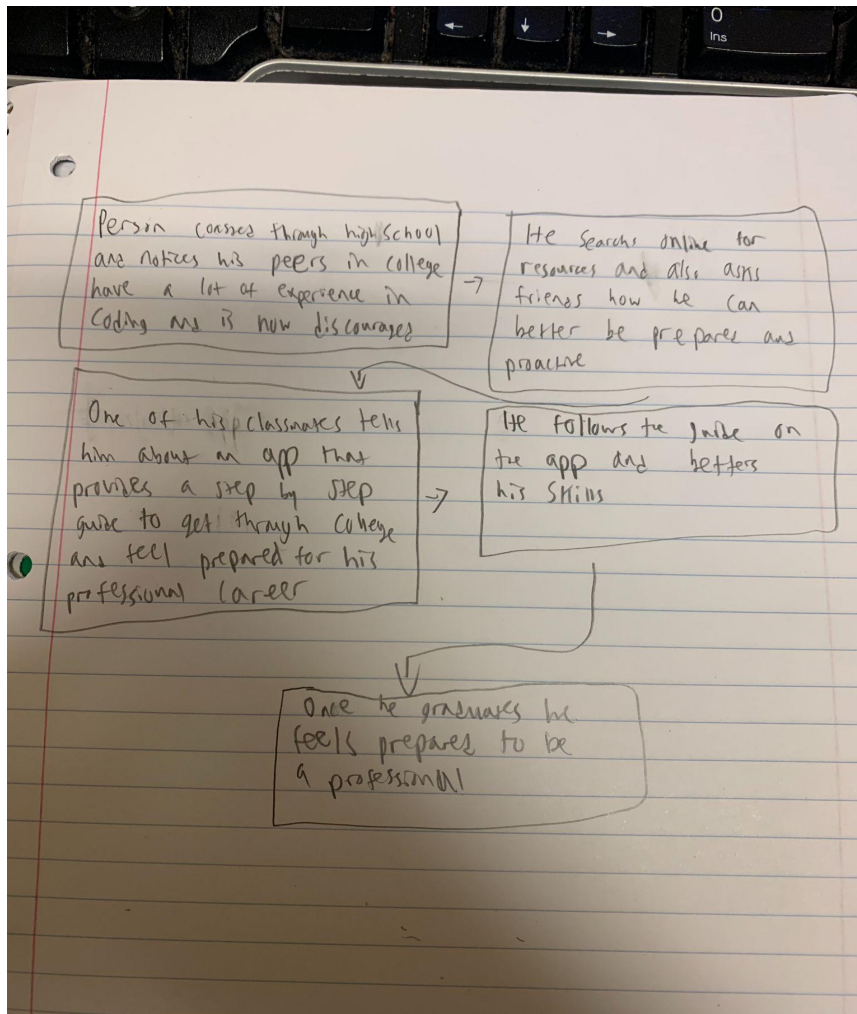 0
Ins
Person coasted through high school
and notices his peers in college
have a lot of experience in
Coding and is now discouraged
He Searchs online for
resources and also asks
friends how he can
better be prepared and
proactive
One of his classmates tells
him about an app that
provides a step by step
guide to get through college
and feel prepared for his
professional Career
He follows the guide on
the app and betters
his Skills
Once he graduates he
feels prepared to be
a professional